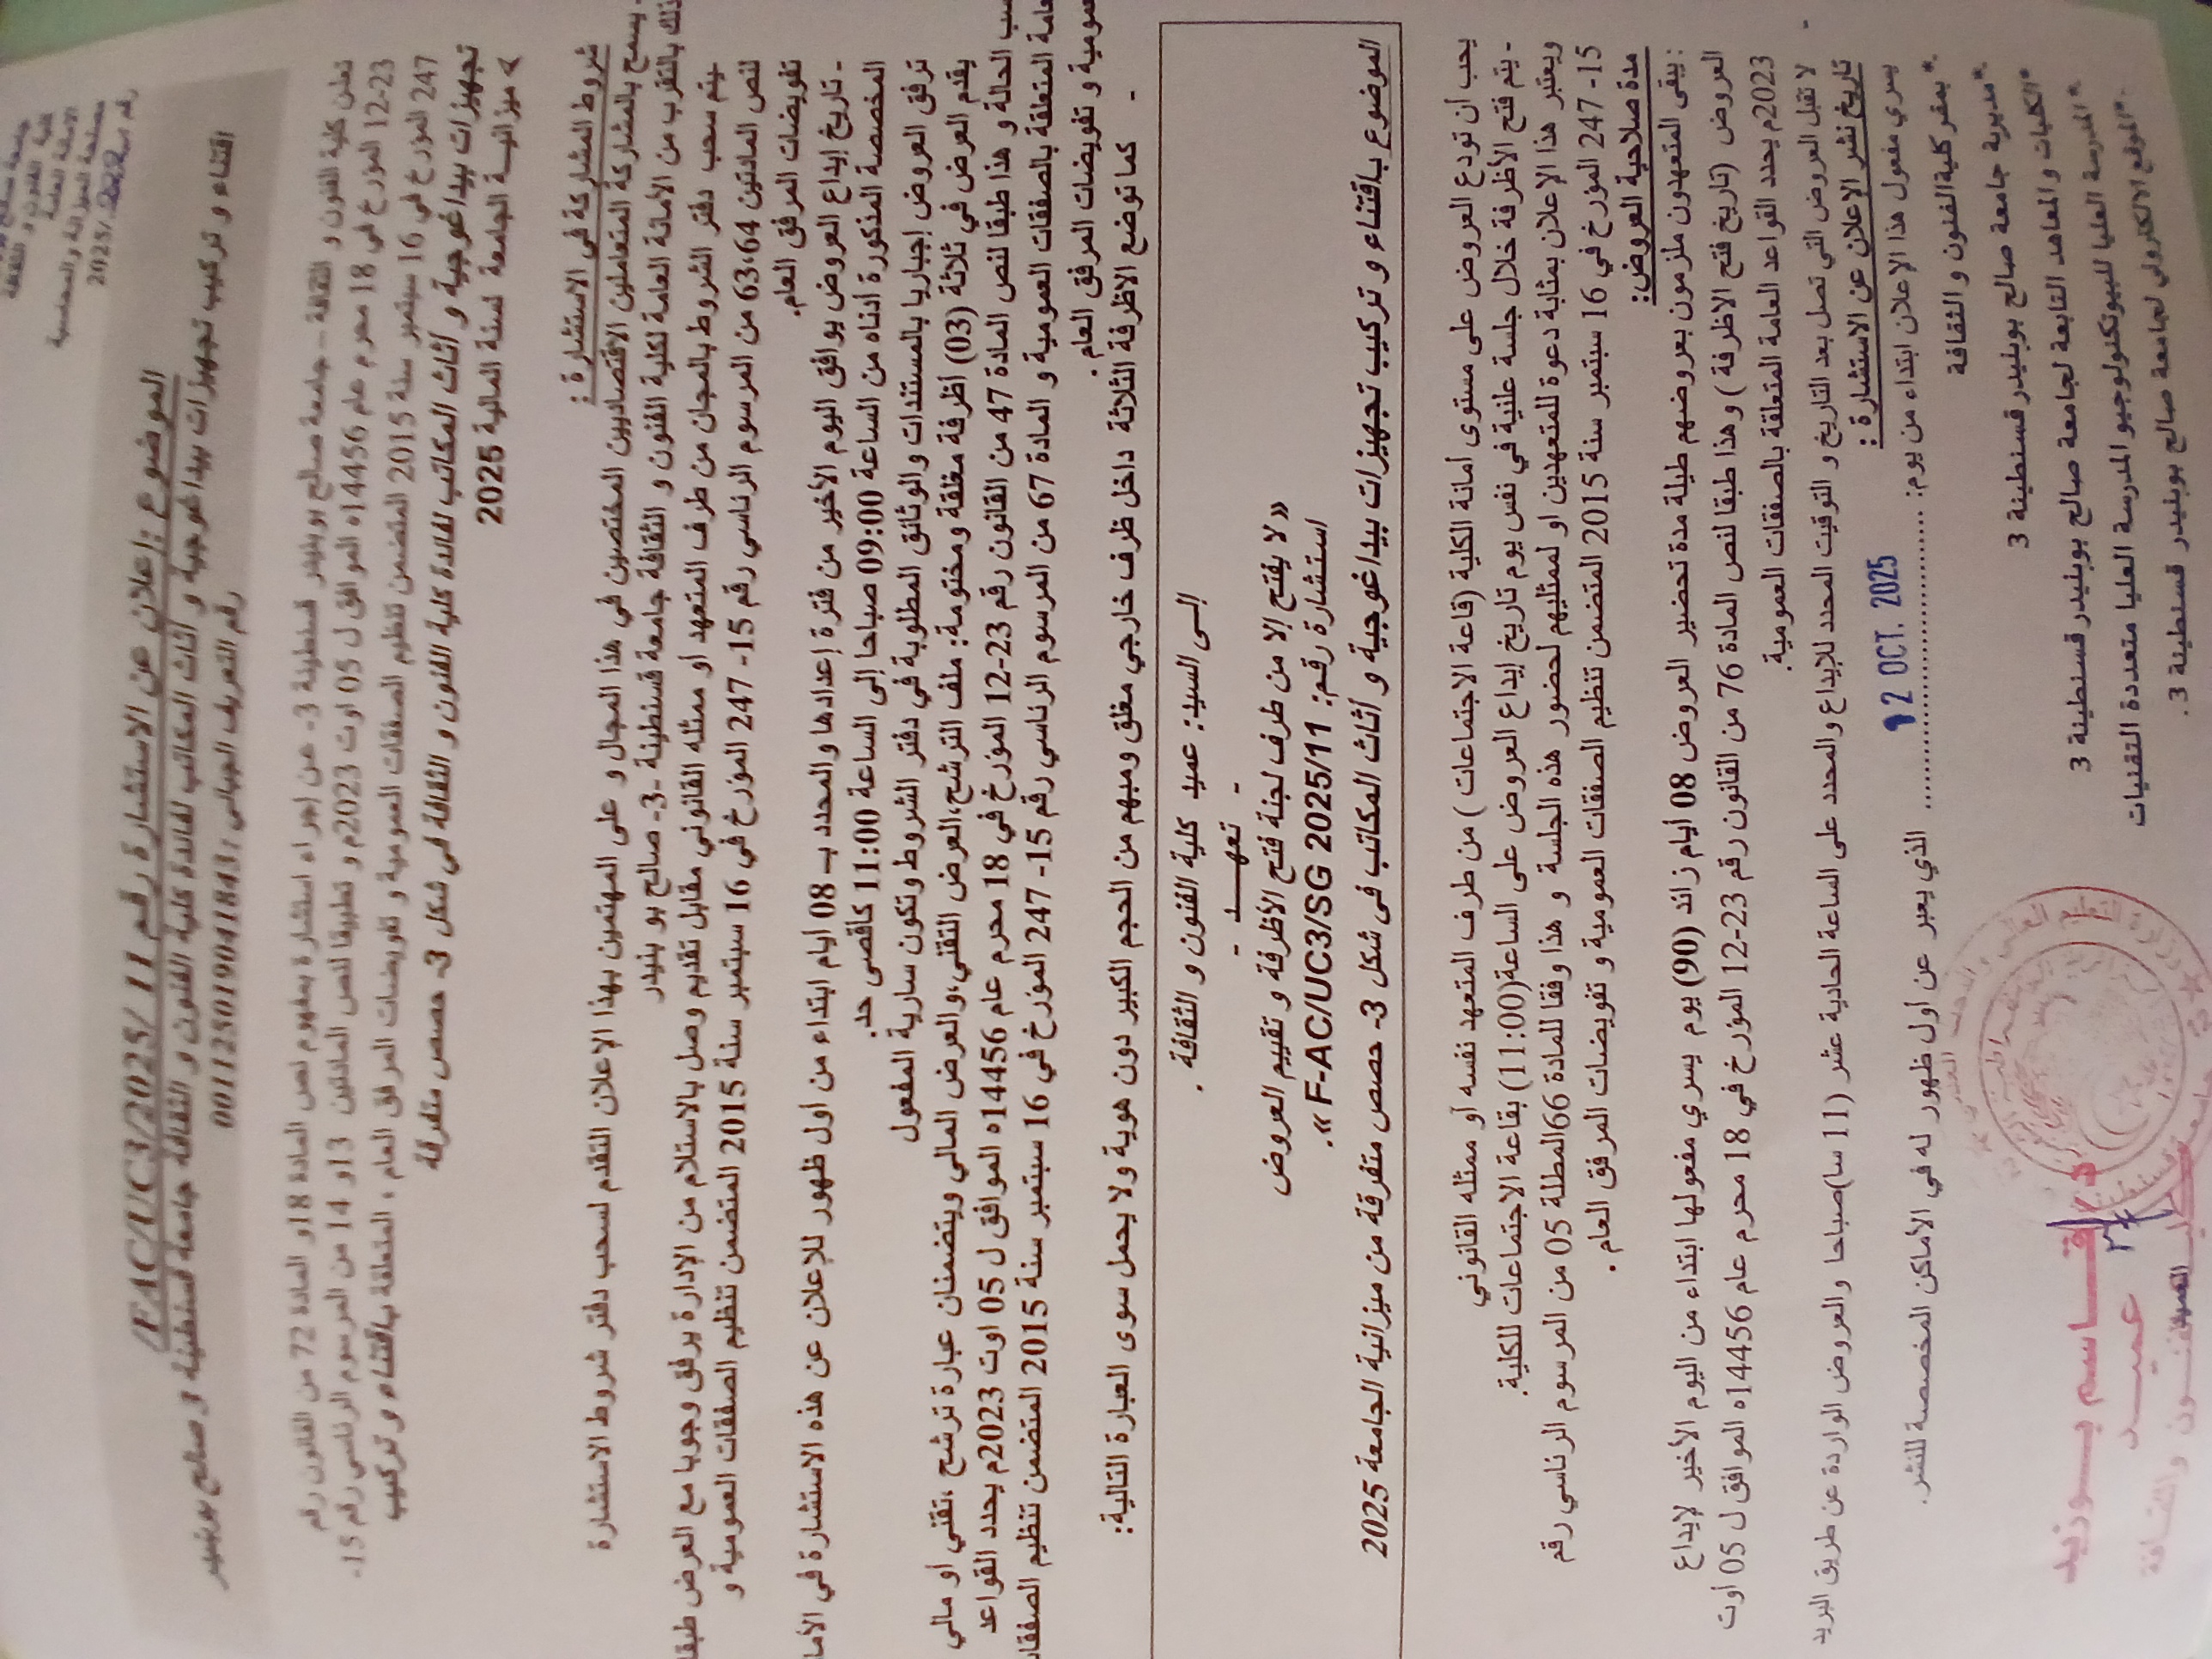 كلية الفنون و الثقافة
الأمانة العامة
مصلحة الميزانية والمحاسبة
رقم /2025
الموضوع :إعلان عن الاستشارة رقم 11 /FAC/UC3/2025/
اقتناء و تركيب تجهيزات بيداغوجية و أثاث المكاتب لفائدة كلية الفنون و الثقافة جامعة قسنطينة 3 صالح بوبنيدر
رقم التعريف الجبائي: 001125019041843
تعلن كلية الفنون و الثقافة – جامعة صالح بوبنيدر قسنطينة 3- عن إجراء استشارة بمفهوم نص المادة 18و المادة 72 من القانون رقم
23-12 المؤرخ في 18 محرم عام 14456ه الموافق ل 05 اوت 2023م و تطبيقا لنص المادتين 13و 14 من المرسوم الرئاسي رقم 15-
247 المؤرخ في 16 سبتمبر سنة 2015 المتضمن تنظيم الصفقات العمومية و تفويضات المرفق العام ، المتعلقة باقتناء و تركيب
تجهيزات بيداغوجية و أثاث المكاتب لفائدة كلية الفنون و الثقافة في شكل 3- حصص متفرقة
➢ ميزانية الجامعة لسنة المالية 2025
شروط المشاركة في الاستشارة :
يسمح بالمشاركة المتعاملين الاقتصاديين المختصين في هذا المجال و على المهتمين بهذا الإعلان التقدم لسحب دفتر شروط الاستشارة
ذلك بالتقرب من الأمانة العامة لكلية الفنون و الثقافة جامعة قسنطينة -3- صالح بو بنيدر
يتم سحب دفتر الشروط بالمجان من طرف المتعهد أو ممثله القانوني مقابل تقديم وصل بالاستلام من الإدارة يرفق وجوبا مع العرض طبقا
لنص المادتين 63،64 من المرسوم الرئاسي رقم 15- 247 المؤرخ في 16 سبتمبر سنة 2015 المتضمن تنظيم الصفقات العمومية و
تفويضات المرفق العام.
- تاريخ إيداع العروض يوافق اليوم الأخير من فترة إعدادها والمحدد بـ 08 أيام ابتداء من أول ظهور للإعلان عن هذه الاستشارة في الأما
المخصصة المذكورة أدناه من الساعة 09:00 صباحا إلى الساعة 11:00 كأقصى حد.
ترفق العروض إجباريا بالمستندات والوثائق المطلوبة في دفتر الشروط وتكون سارية المفعول
يقدم العرض في ثلاثة (03) أظرفة مغلقة ومختومة: ملف الترشح،العرض التقني،والعرض المالي ويتضمنان عبارة ترشح ،تقني أو مالي
الحالة و هذا طبقا لنص المادة 47 من القانون رقم 23-12 المؤرخ في 18 محرم عام 14456ه الموافق ل 05 اوت 2023م يحدد القواعد
المتعلقة بالصفقات العمومية و المادة 67 من المرسوم الرئاسي رقم 15- 247 المؤرخ في 16 سبتمبر سنة 2015 المتضمن تنظيم الصفقات
و تفويضات المرفق العام.
- كما توضع الاظرفة الثلاثة داخل ظرف خارجي مغلق ومبهم من الحجم الكبير دون هوية ولا يحمل سوى العبارة التالية:
إلى السيد: عميد كلية الفنون و الثقافة .
- تعهـــد -
«لا يفتح إلا من طرف لجنة فتح الأظرفة و تقييم العروض
استشارة رقم: F-AC/UC3/SG 2025/11 ».
الموضوع باقتناء و تركيب تجهيزات بيداغوجية و أثاث المكاتب في شكل 3- حصص متفرقة من ميزانية الجامعة 2025
يجب أن تودع العروض على مستوى أمانة الكلية (قاعة الاجتماعات ) من طرف المتعهد نفسه أو ممثله القانوني
- يتم فتح الأظرفة خلال جلسة علنية في نفس يوم تاريخ إيداع العروض على الساعة(11:00) بقاعة الاجتماعات للكلية.
ويعتبر هذا الإعلان بمثابة دعوة للمتعهدين او لممثليهم لحضور هذه الجلسة و هذا وفقا للمادة 66المطلة 05 من المرسوم الرئاسي رقم
15- 247 المؤرخ في 16 سبتمبر سنة 2015 المتضمن تنظيم الصفقات العمومية و تفويضات المرفق العام .
مدة صلاحية العروض:
: يبقى المتعهدون ملزمون بعروضهم طيلة مدة تحضير العروض 08 أيام زائد (90) يوم يسري مفعولها ابتداء من اليوم الأخير لإيداع
العروض (تاريخ فتح الاظرفة ) وهذا طبقا لنص المادة 76 من القانون رقم 23-12 المؤرخ في 18 محرم عام 14456ه الموافق ل 05 اوت
2023م يحدد القواعد العامة المتعلقة بالصفقات العمومية.
لا تقبل العروض التي تصل بعد التاريخ و التوقيت المحدد للإيداع والمحدد على الساعة الحادية عشر (11 سا)صباحا و العروض الواردة عن طريق البريد
تاريخ نشر الإعلان عن الاستشارة :
يسري مفعول هذا الإعلان ابتداء من يوم: 12 OCT. 2025 الذي يعبر عن أول ظهور له في الأماكن المخصصة للنشر.
*بمقر كلية الفنون و الثقافة
*مديرية جامعة صالح بوبنيدر قسنطينة 3
*الكليات و المعاهد التابعة لجامعة صالح بوبنيدر قسنطينة 3
*المدرسة العليا للبيوتكنولوجيو المدرسة العليا متعددة التقنيات
*الموقع الالكتروني لجامعة صالح بوبنيدر قسنطينة 3.
عميد